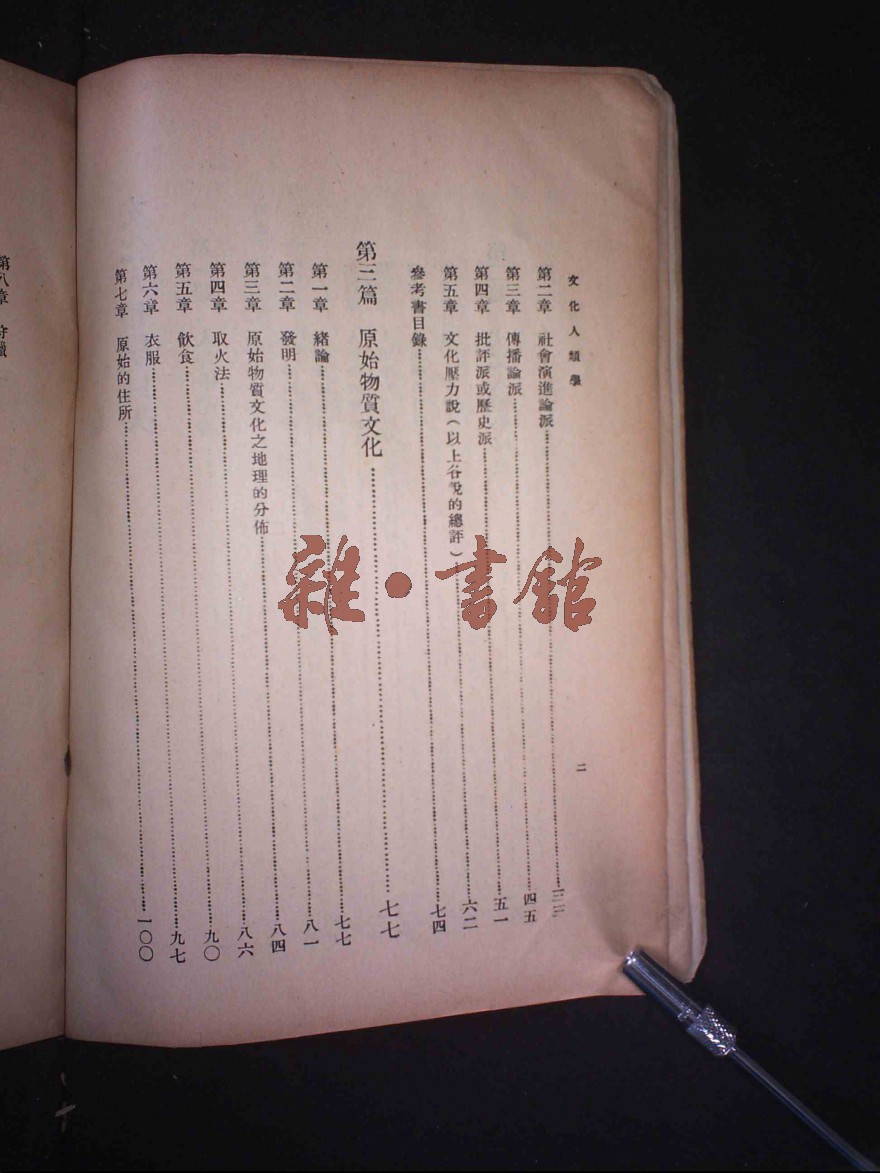 文化人類學
二
第二章 社會演進論派……三三
第三章 傳播論派……四五
第四章 批評派或歷史派……五一
第五章 文化壓力說(以上各說的總評)……六二
參考書目錄……七四
第三篇 原始物質文化……七七
第一章 緒論……七七
第二章 發明……八一
第三章 原始物質文化之地理的分佈……八四
第四章 取火法……八六
第五章 飲食……九〇
第六章 衣服……九七
第七章 原始的住所……一〇〇
第八章 狩獵
雜·書館